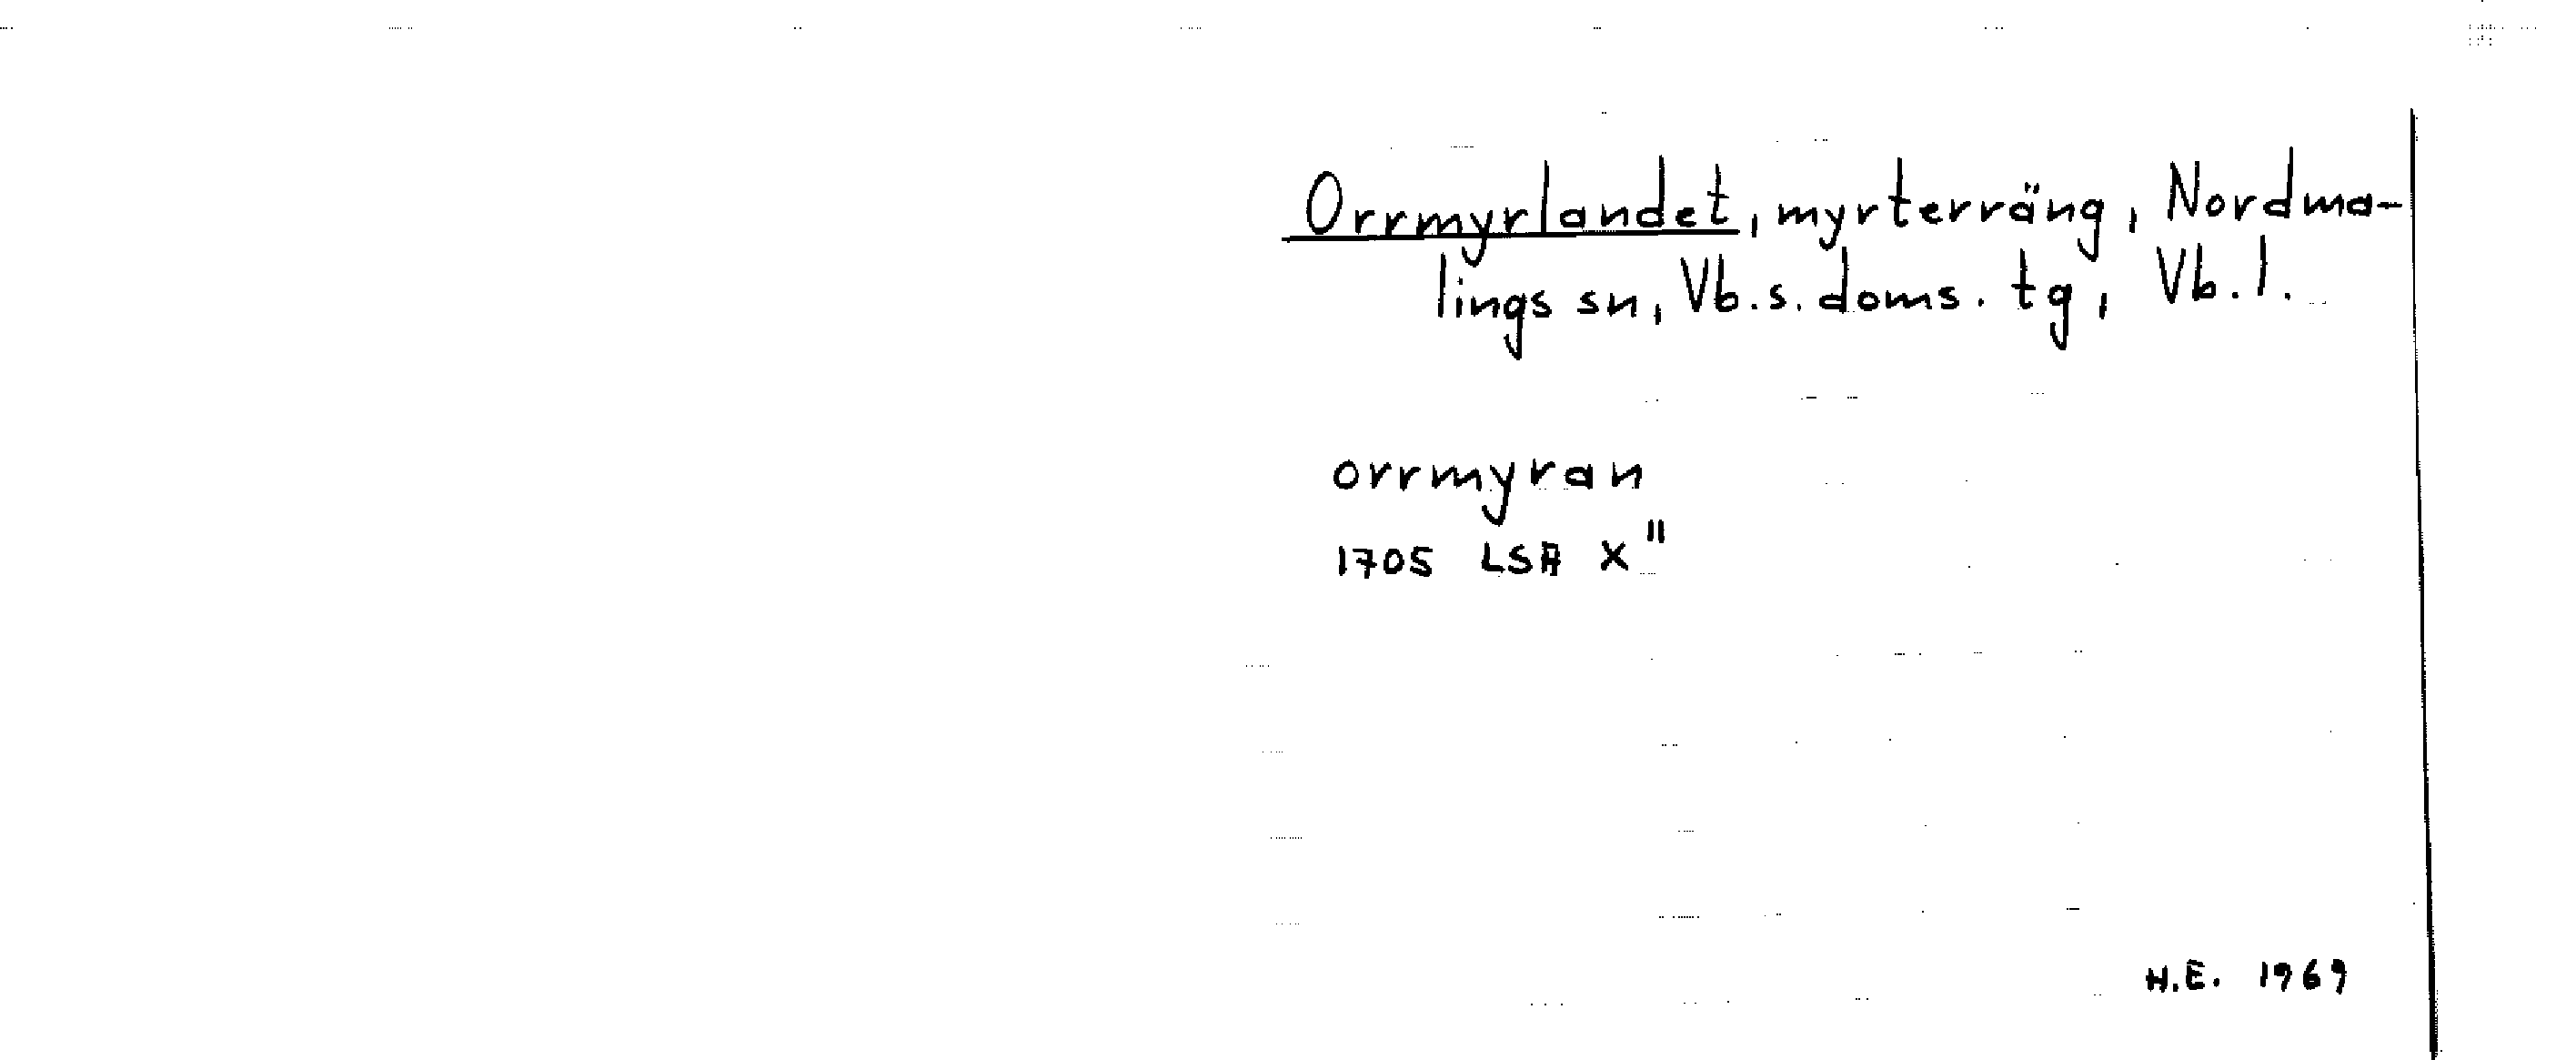 Orrmyrlandet, myrterräng, Nordma-
lings sn, Vb. s. doms. tg, Vb. l.
orrmyran
1705 LSA X"
H.E. 1969